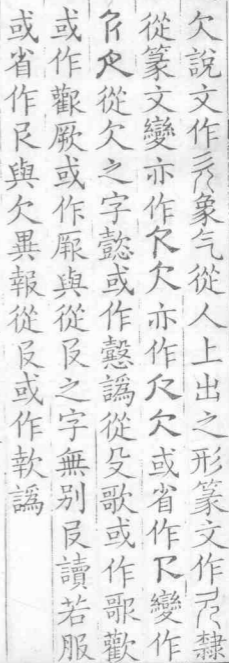 欠說文作象气從人上出之形篆文作隸
從篆文變亦作欠亦作欠或省作變作
從欠之字懿或作㦤譌從殳歌或作歌歡
或作歡厥或作厥與從𠬝之字無別𠬝讀若服
或省作与欠異報從𠬝或作軟譌